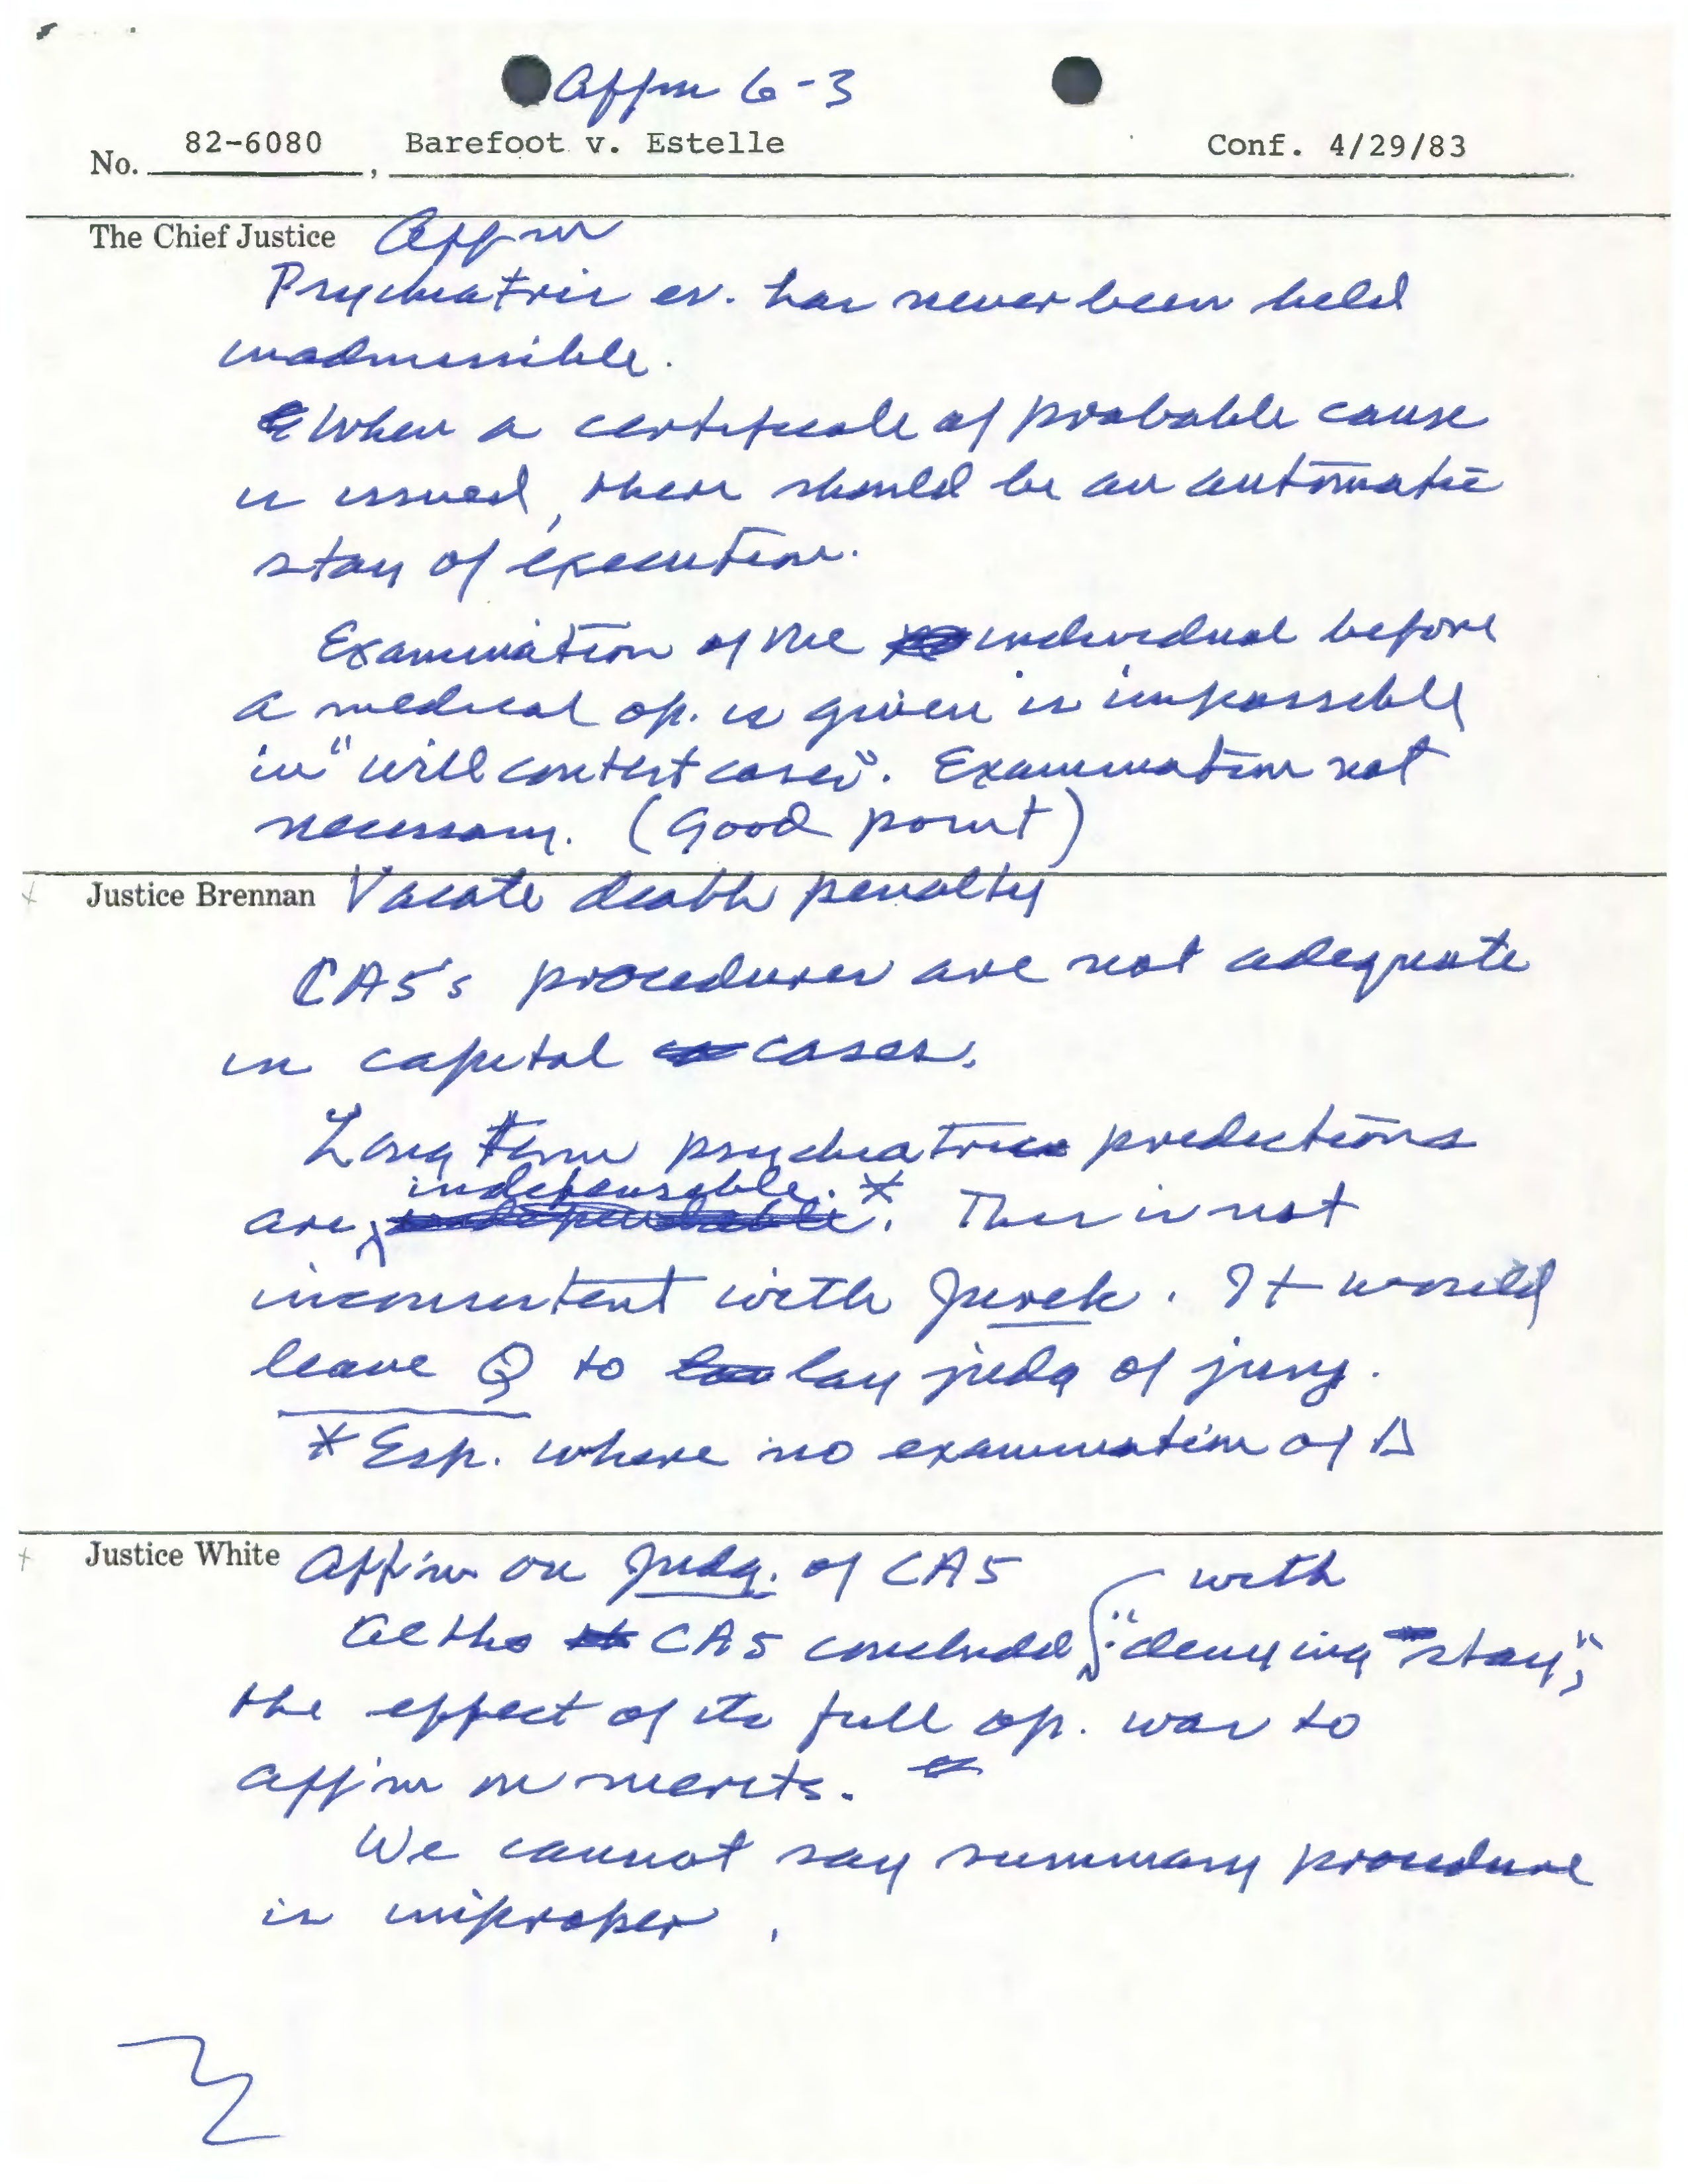 Affirm 6-3
No. 82-6080, Barefoot v. Estelle Conf. 4/29/83
The Chief Justice Affirm
Psychiatric ev. has never been held
inadmissible.
When a certificate of probable cause
is issued, there should be an automatic
stay of execution.
Examination of the individual before
a medical op. is given is impossible
in "will contest cases". Examination not
necessary. (Good point)
Justice Brennan Vacate death penalty
CA5's procedures are not adequate
in capital cases.
Long term psychiatric predictions
indefensable. *
are This is not
inconsistent with Jurek. It would
leave Q to lay judg of jury.
* Esp. where no examination of Δ
Justice White Affirm on judg. of CA5
with
Altho CA5 concluded "denying stay",
the effect of its full op. was to
affirm on merits.
We cannot say summary procedure
is improper.